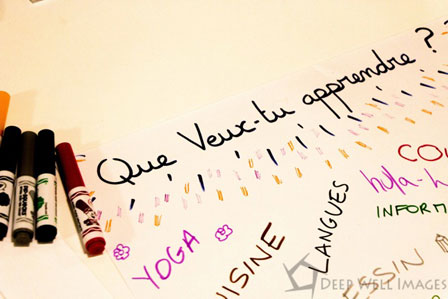 Que Veux-tu apprendre ?
COU
hula-h
INFORM
YOGA
UISINE
LANGUES
ESSIN
DEEP WELL IMAGES